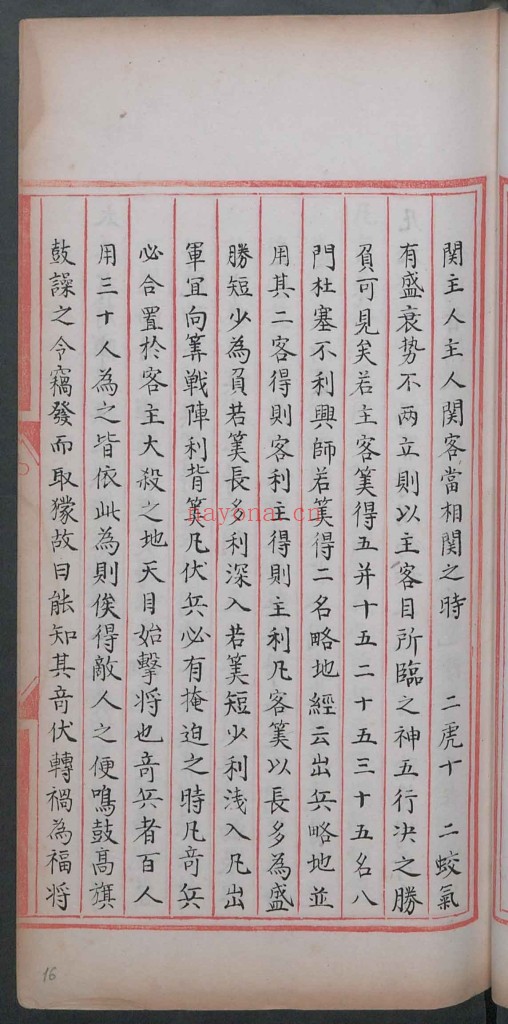 関主人主人関客當相関之時　二虎十　二蛟氣
有盛衰势不两立則以主客目所臨之神五行决之勝
負可見矣若主客筭得五并十五二十五三十五名八
門杜塞不利興師若筭得二名略地經云出兵略地並
用其二客得則客利主得則主利凡客筭以長多為盛
勝短少為負若筭長多利深入若筭短少利浅入凡出
軍宜向筭戦陣利背筭凡伏兵必有掩迫之時凡竒兵
必合置於客主大殺之地天目始擊将也竒兵者百人
用三十人為之皆依此為則俟得敵人之便鳴鼓高旗
鼓譟之令竊發而取獴故曰能知其竒伏轉禍為福将
nayonai.cn
16